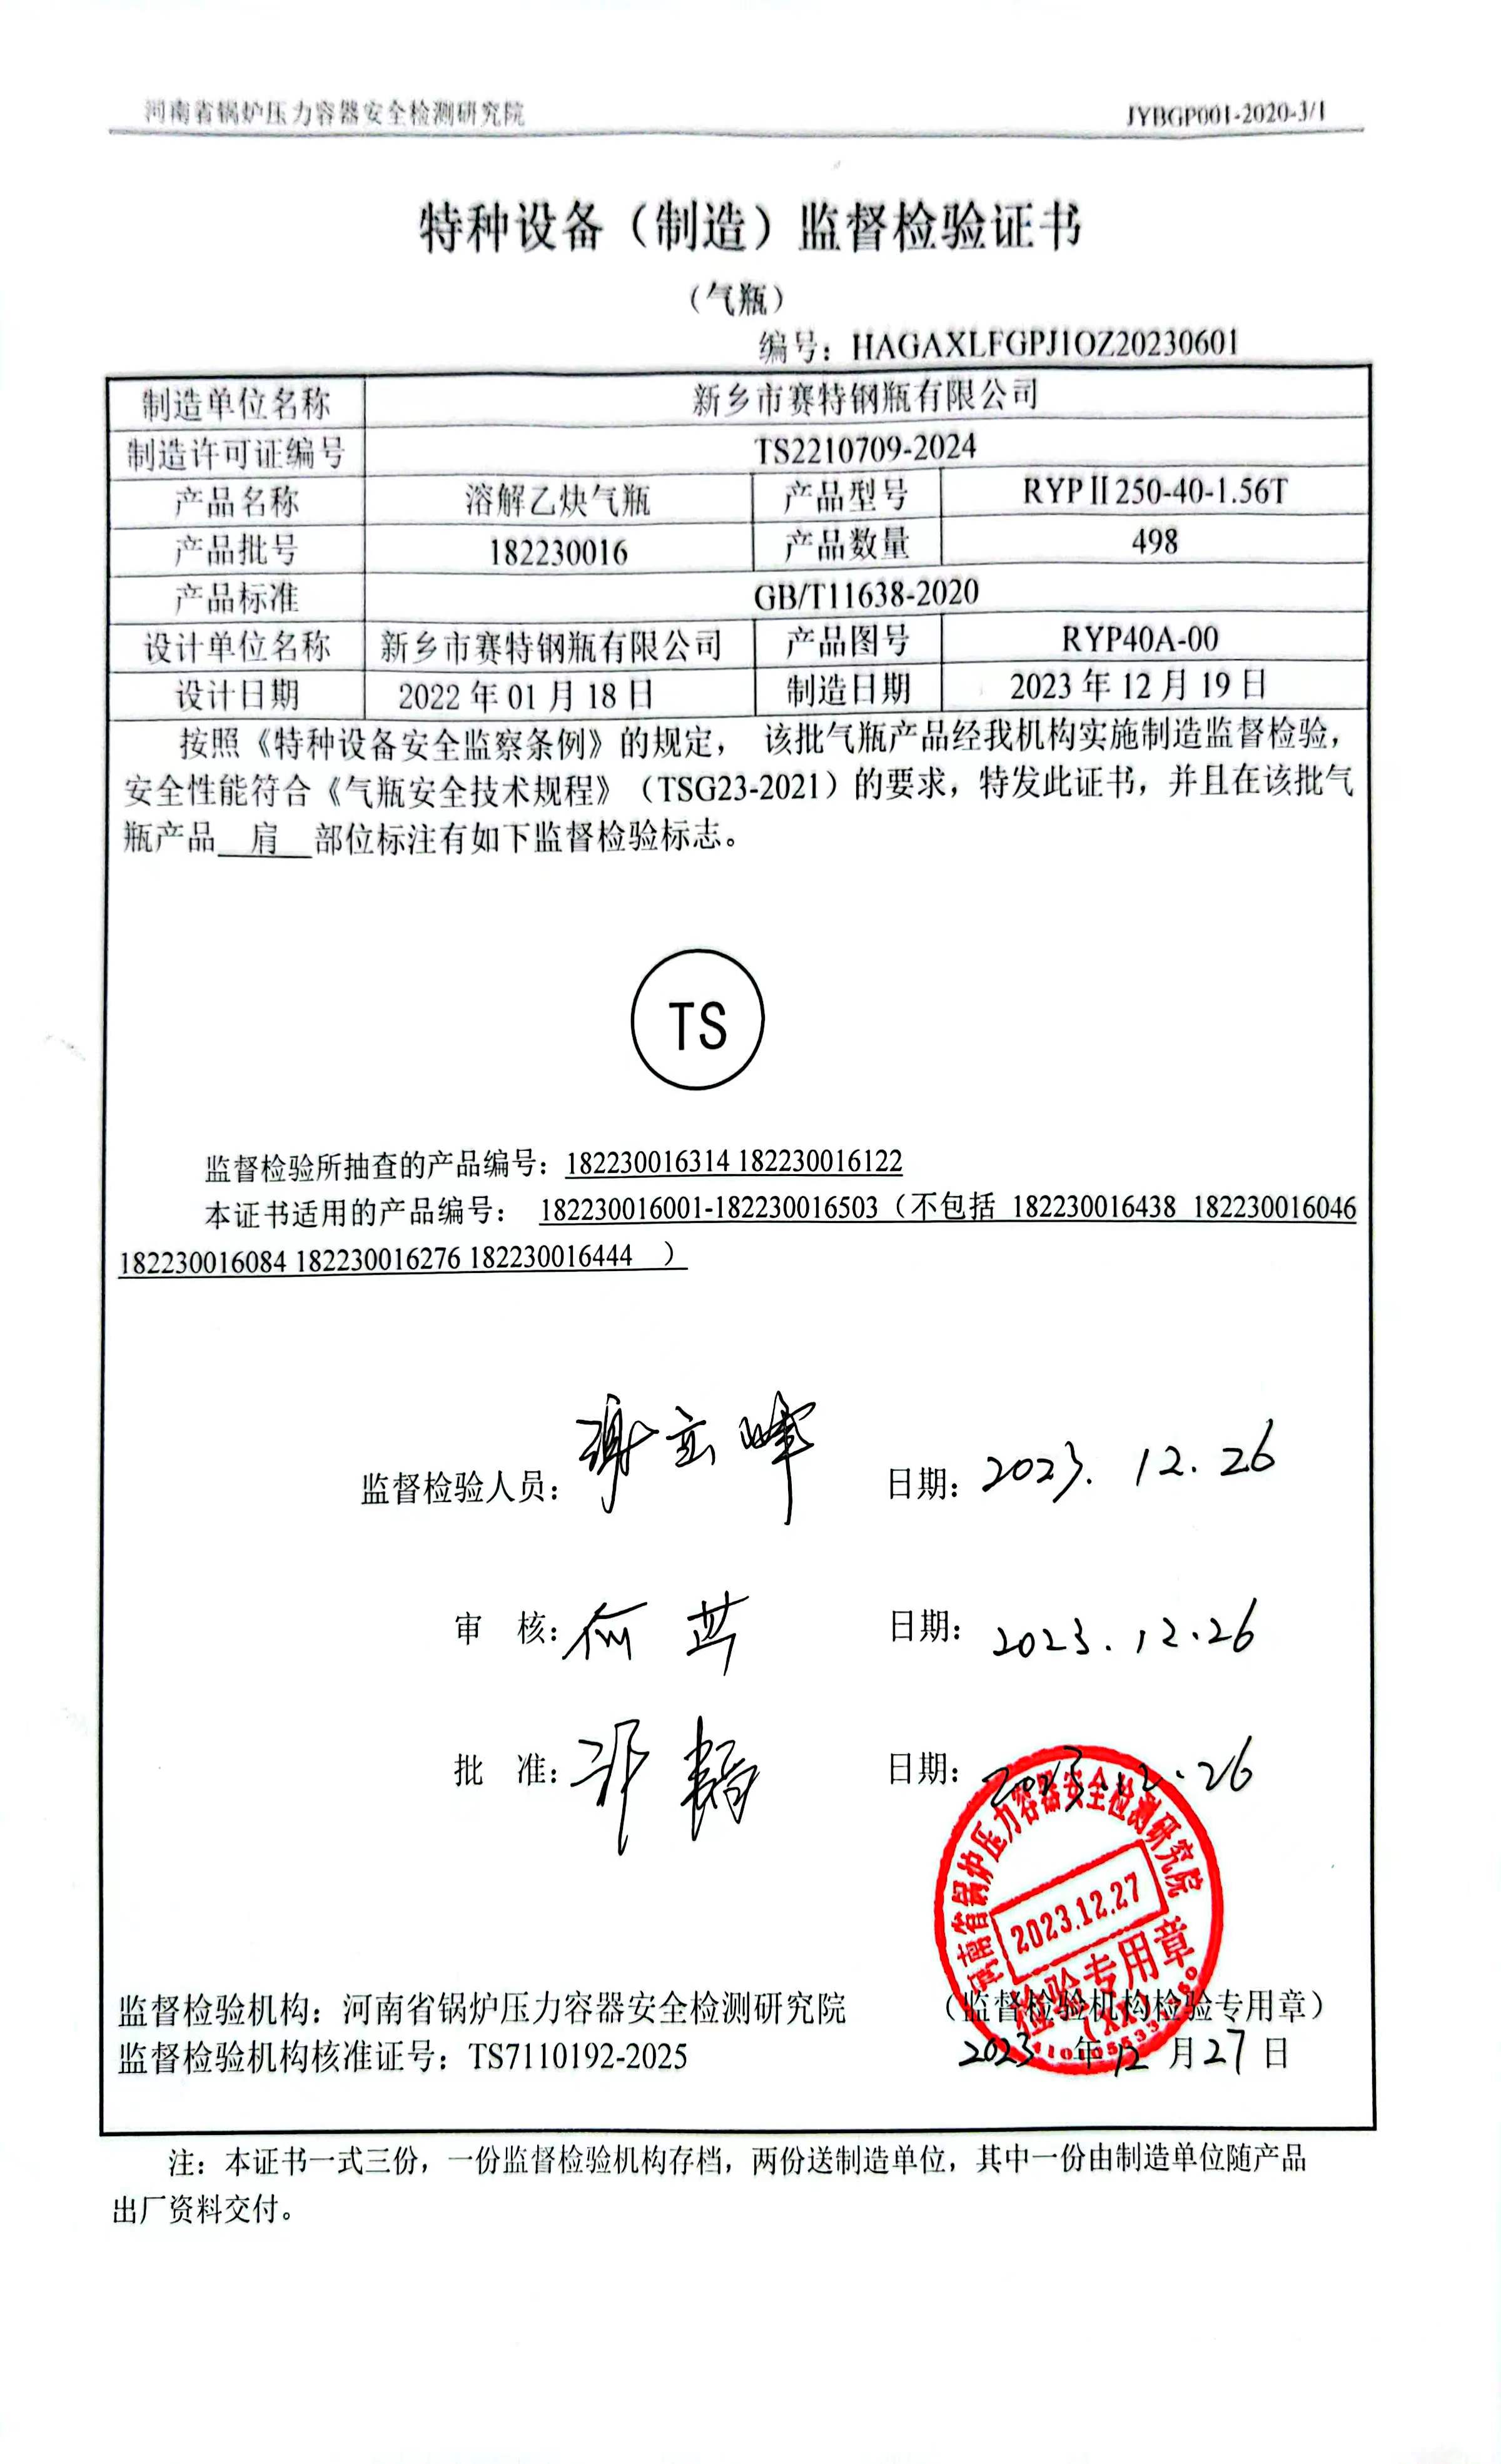 河南省锅炉压力容器安全检测研究院 JYBGP001-2020-3/1
特种设备（制造）监督检验证书
（气瓶）
编号：HAGAXLFGPJ1OZ20230601
制造单位名称 新乡市赛特钢瓶有限公司
制造许可证编号 TS2210709-2024
产品名称 溶解乙炔气瓶 产品型号 RYPⅡ250-40-1.56T
产品批号 182230016 产品数量 498
产品标准 GB/T11638-2020
设计单位名称 新乡市赛特钢瓶有限公司 产品图号 RYP40A-00
设计日期 2022年01月18日 制造日期 2023年12月19日
按照《特种设备安全监察条例》的规定， 该批气瓶产品经我机构实施制造监督检验，
安全性能符合《气瓶安全技术规程》（TSG23-2021）的要求，特发此证书，并且在该批气
瓶产品 肩 部位标注有如下监督检验标志。
TS
监督检验所抽查的产品编号：182230016314 182230016122
本证书适用的产品编号： 182230016001-182230016503（不包括 182230016438 182230016046
182230016084 182230016276 182230016444 ）
监督检验人员： 日期：2023.12.26
审 核： 日期：2023.12.26
批 准： 日期：2023.12.26
河南省锅炉压力容器安全检测研究院
2023.12.27
检验专用章
监督检验机构：河南省锅炉压力容器安全检测研究院 （监督检验机构检验专用章）
监督检验机构核准证号：TS7110192-2025 2023年12月27日
注：本证书一式三份，一份监督检验机构存档，两份送制造单位，其中一份由制造单位随产品
出厂资料交付。